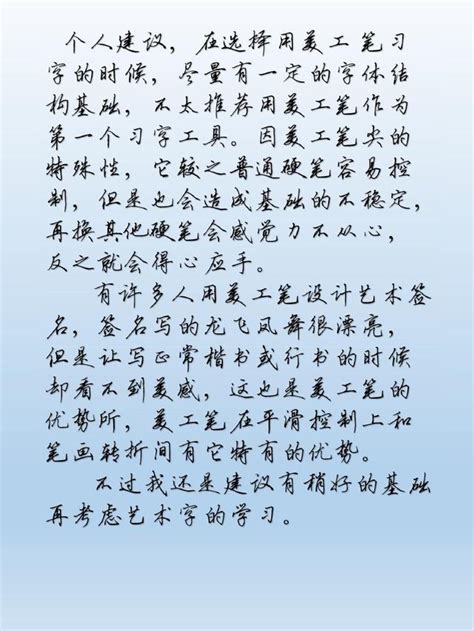 个人建议，在选择用美工笔习
字的时候，尽量有一定的字体结
构基础，不太推荐用美工笔作为
第一个习字工具。因美工笔尖的
特殊性，它较之普通硬笔容易控
制，但是也会造成基础的不稳定，
再换其他硬笔会感觉力不从心，
反之就会得心应手。
有许多人用美工笔设计艺术签
名，签名写的龙飞凤舞很漂亮，
但是让写正常楷书或行书的时候
却看不到美感，这也是美工笔的
优势所，美工笔在平滑控制上和
笔画转折间有它特有的优势。
不过我还是建议有稍好的基础
再考虑艺术字的学习。